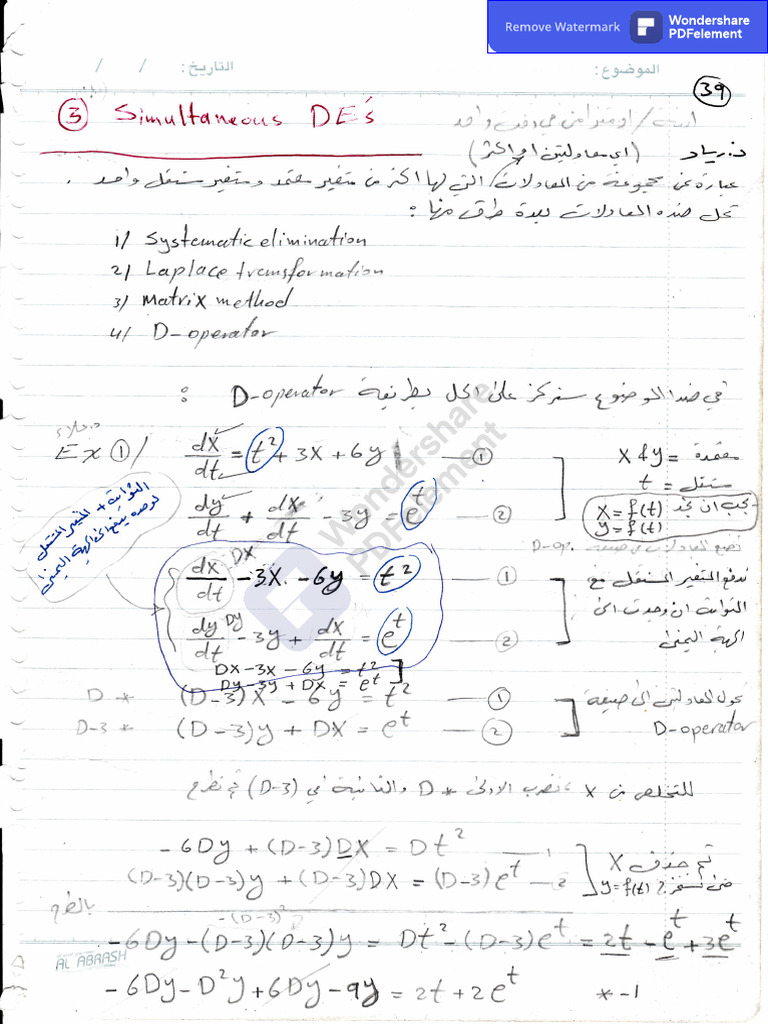 Remove Watermark Wondershare PDFelement
الموضوع: التاريخ: / /
39
③ Simultaneous DE's
(اي معادلتين او اكثر)
عبارة عن مجموعة من المعادلات التي لها اكثر من متغير معتمد ومتغير مستقل واحد.
تحل هذه المعادلات بعدة طرق منها:
1/ Systematic elimination
2/ Laplace transformation
3/ Matrix method
4/ D-operator
في هذا الموضوع سنركز على الحل بطريقة D-operator :
Ex ①/ dx/dt = t² + 3x + 6y — ①
x & y = معتمدة
t = مستقل
dy/dt + dx/dt - 3y = e^t — ②
يجب ان نجد x = f(t)
y = f(t)
الثوابت + المتغير المستقل
الجهة اليمنى
dx/dt Dx - 3x - 6y = t² — ①
dy/dt Dy - 3y + dx/dt = e^t — ②
ندفع المتغير المستقل مع
الثوابت ان وجدت الى
الجهة اليمنى
Dx - 3x - 6y = t²
Dy - 3y + Dx = e^t
D * (D-3)x - 6y = t² — ①
D-3 * (D-3)y + Dx = e^t — ②
نحول المعادلتين الى صيغة
D-operator
للتخلص من x ، نضرب الاولى * D والثانية في (D-3) ثم نطرح
-6Dy + (D-3)Dx = Dt² — 1
(D-3)(D-3)y + (D-3)Dx = (D-3)e^t — 2
تم حذف x
y = f(t)
بالطرح
-(D-3)²
-6Dy - (D-3)(D-3)y = Dt² - (D-3)e^t = 2t - e^t + 3e^t
-6Dy - D²y + 6Dy - 9y = 2t + 2e^t * -1
AL ABRASH
Wondershare
PDFelement